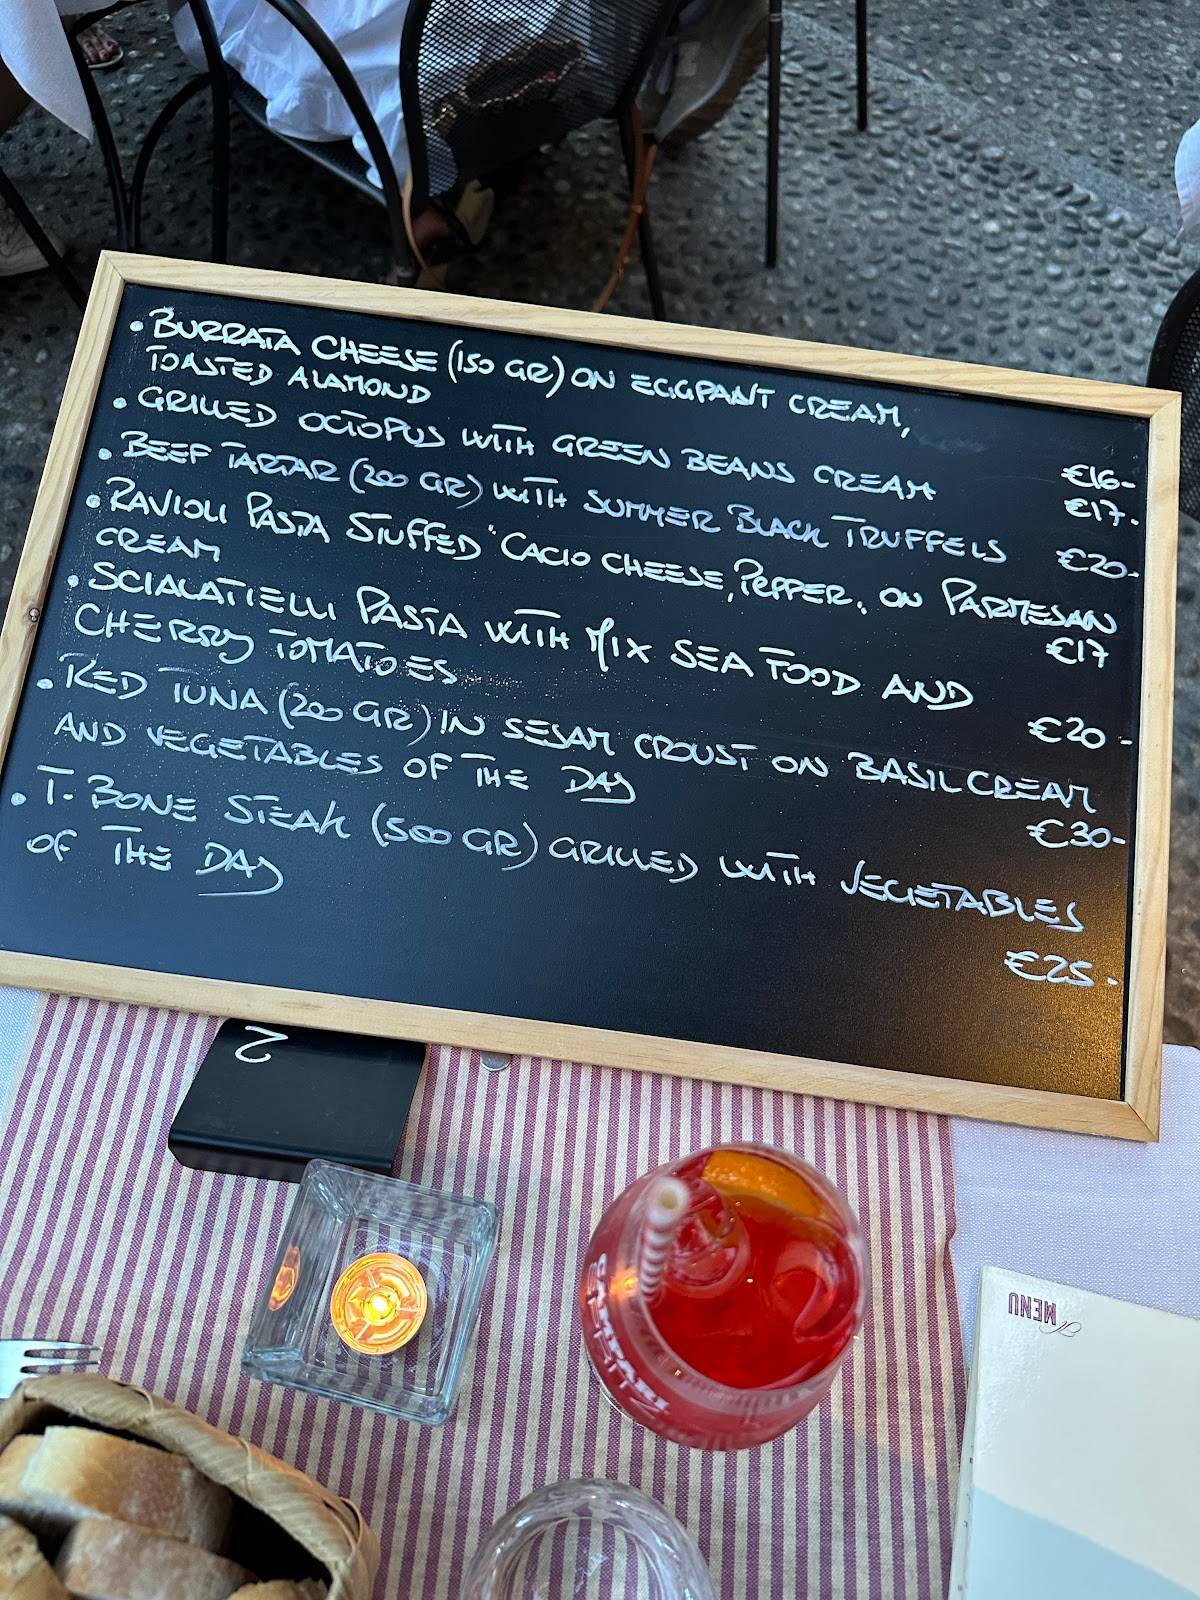 • BURRATA CHEESE (150 GR) ON EGGPANT CREAM,
TOASTED ALAMOND €16-
• GRILLED OCTOPUS WITH GREEN BEANS CREAM €17-
• BEEF TARTAR (200 GR) WITH SUMMER BLACK TRUFFELS €20-
• RAVIOLI PASTA STUFFED "CACIO CHEESE, PEPPER, ON PARMESAN
CREAM €17
• SCIALATIELLI PASTA WITH MIX SEA FOOD AND
CHERRY TOMATOES €20-
• RED TUNA (200 GR) IN SESAM CROUST ON BASIL CREAM
AND VEGETABLES OF THE DAY €30-
• T-BONE STEAK (500 GR) GRILLED WITH VEGETABLES
OF THE DAY €25-
2
CAMPARI
MENU